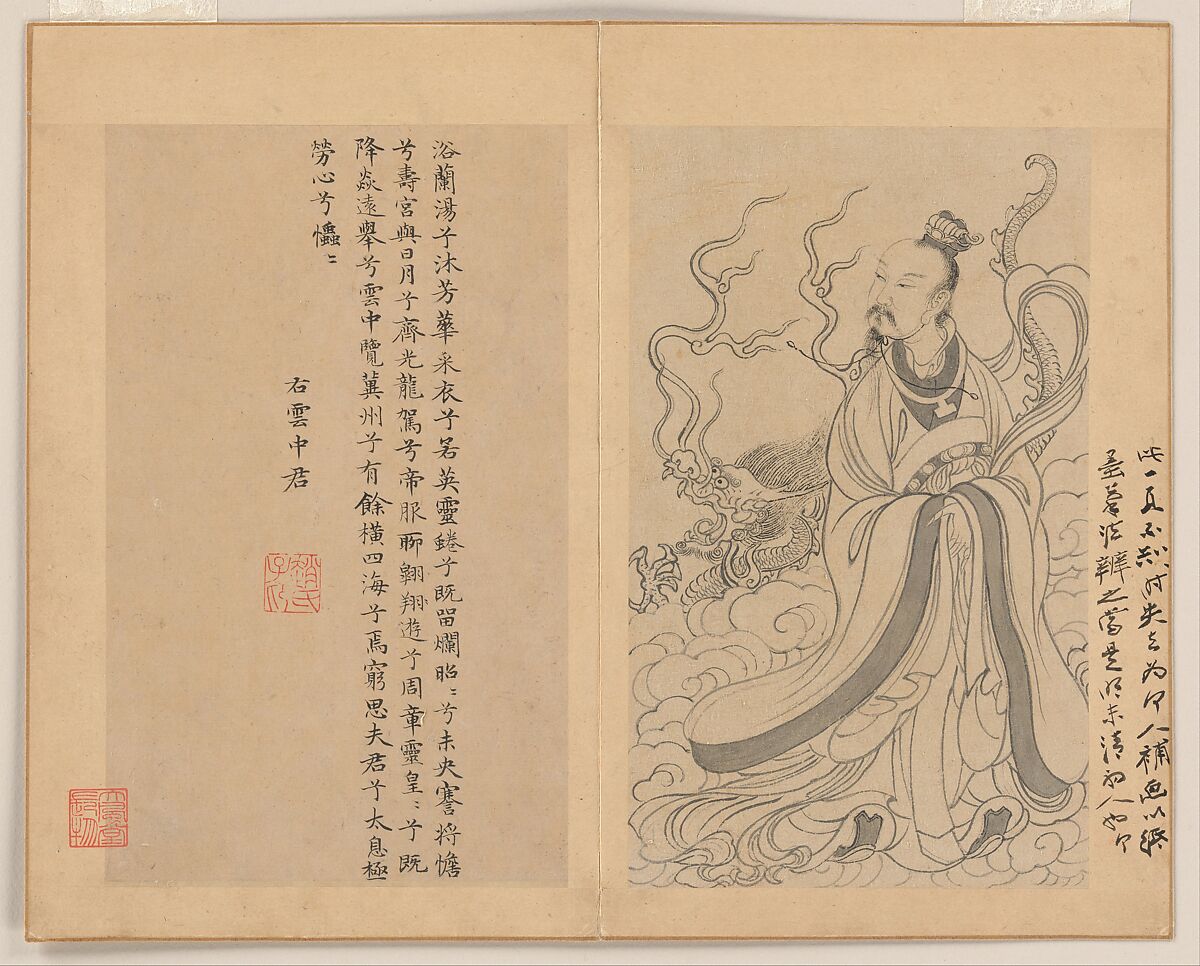 此一頁不知何時失去為何人補畫以紙
墨筆法辨之當是明末清初人也
浴蘭湯兮沐芳華采衣兮若英靈蜷兮既留爛昭〻兮未央謇將憺
兮壽宮與日月兮齊光龍駕兮帝服聊翱翔遊兮周章靈皇〻兮既
降焱遠舉兮雲中覽冀州兮有餘橫四海兮焉窮思夫君兮太息極
勞心兮𢥞〻
右雲中君
趙氏子昂